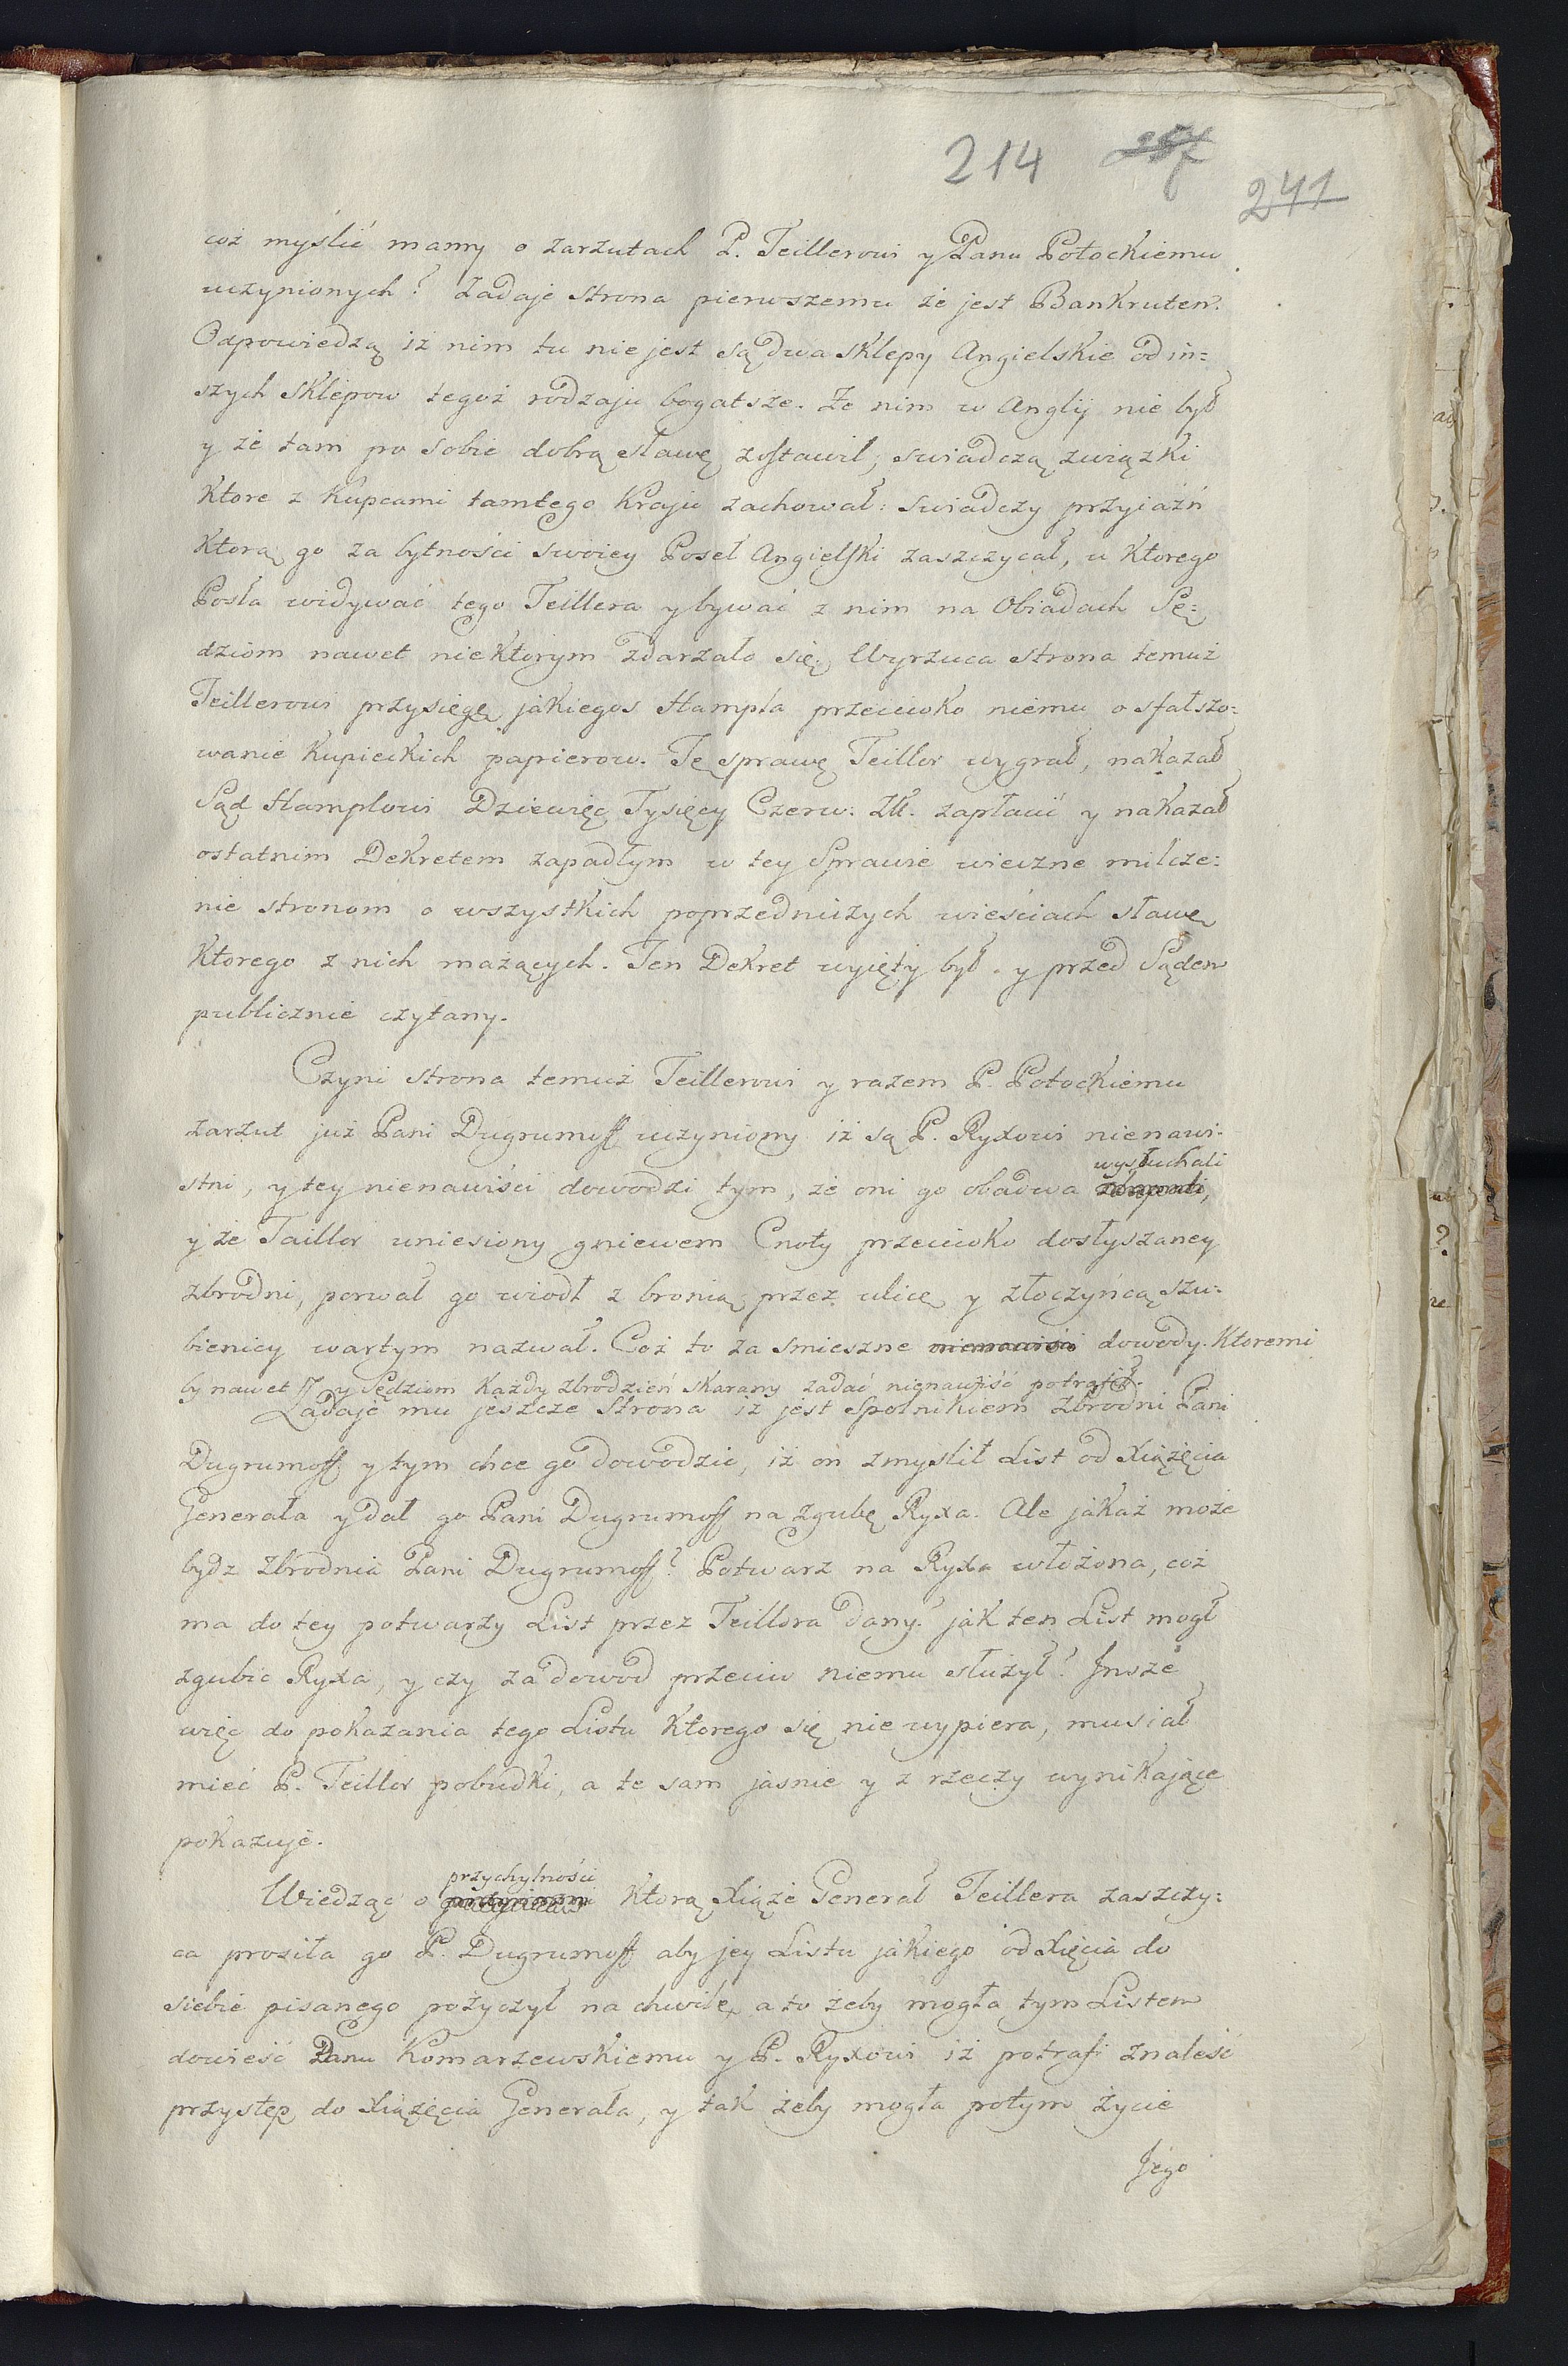 214 257 241
coż myślić mamy o zarzutach P. Teillerowi y Panu Potockiemu
uczynionych? Zadaje strona pierwszemu że jest Bankrutem.
Odpowiedzą iż nim tu nie jest są dwa sklepy Angielskie od in=
szych sklepow tegoż rodzaju bogatsze. Że nim w Anglij nie był
y że tam po sobie dobrą sławę zostawił; swiadczą związki
ktore z Kupcami tamtego Kraju zachował: swiadczy przyiaźń
ktorą go za bytności swoiey Poseł Angielski zaszczycał, u ktorego
Posła widywać tego Teillera y bywać z nim na Obiadach Sę=
dziom nawet niektorym zdarzało się. Wyrzuca strona temuż
Teillerowi przysięgę jakiegos Hampla przeciwko niemu o sfałszo=
wanie kupieckich papierow. Tę sprawę Teiller wygrał, nakazał
Sąd Hamplowi Dziewięć Tysięcy Czerw: Zł. zapłacić y nakazał
ostatnim Dekretem zapadłym w tey Sprawie wieczne milcze=
nie stronom o wszystkich poprzedniczych wieściach sławę
ktorego z nich mażących. Ten Dekret wyięty był y przed Sądem
publicznie czytany.
Czyni strona temuż Teillerowi y razem P. Potockiemu
zarzut już Pani Dugrumoff uczyniony iż są P. Ryxowi nienawi=
wysłuchali
stni, y tey nienawiści dowodzi tym, że oni go obadwa
y że Taillor uniesiony gniewem Cnoty przeciwko dosłyszaney
zbrodni, porwał go wiodł z bronią przez ulicę y złoczyńcą szu=
bienicy wartym nazwał. Coż to za smieszne nienawiści dowody. Ktoremi
by nawet y Sędziom każdy zbrodzień skarany zadać nienawiść potrafił.
Zadaje mu jeszcze Strona iż jest Spolnikiem Zbrodni Pani
Dugrumoff y tym chce go dowodzic, iż on zmyslił List od Xiążęcia
Generała y dał go Pani Dugrumoff na zgubę Ryxa. Ale jakaż może
bydz Zbrodnia Pani Dugrumoff? Potwarz na Ryxa włożona, coż
ma do tey potwarzy List przez Teillora dany? jak ten List mogł
zgubic Ryxa, y czy za dowod przeciw niemu służył? Insze
więc do pokazania tego Listu ktorego się nie wypiera, musiał
mieć P. Teillor pobudki, a te sam jasnie y z rzeczy wynikające
pokazuje.
przychylności
Wiedząc o ktorą Xiąże Generał Teillera zaszczy=
ca prosiła go P. Dugrumoff aby jey Listu jakiego od Xięcia do
siebie pisanego pożyczył na chwilę, a to żeby mogła tym Listem
dowieść Panu Komarzewskiemu y P. Ryxowi iż potrafi znaleść
przystęp do Xiążęcia Generała, y tak żeby mogła potym życie
Jego